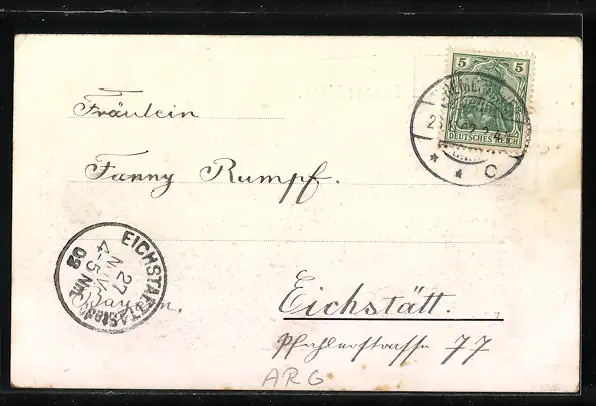 5 5
DEUTSCHES REICH
C
Fräulein
Fanny Rumpf.
EICHSTÄTT
27
NOV
4-5 NM.
02
Bayern.
Eichstätt.
Pfahlerstrasse 77
ARG